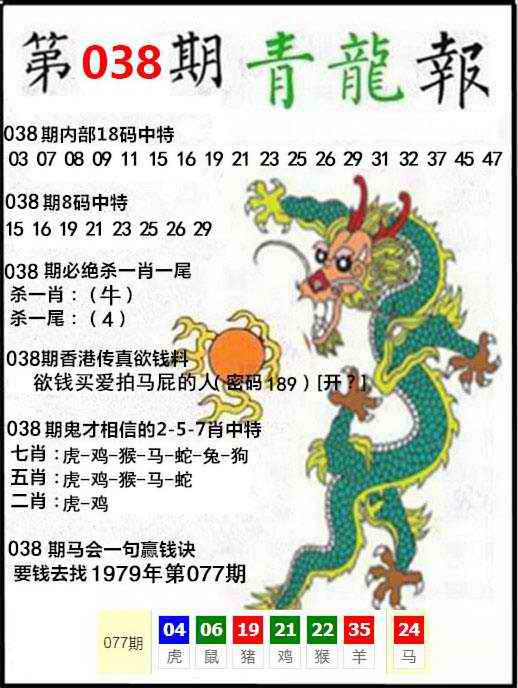 第038期青龍報
038期内部18码中特
03 07 08 09 11 15 16 19 21 23 25 26 29 31 32 37 45 47
038期8码中特
15 16 19 21 23 25 26 29
038期必绝杀一肖一尾
杀一肖：（牛）
杀一尾：（4）
038期香港传真欲钱料
欲钱买爱拍马屁的人(密码189）[开？]
038期鬼才相信的2-5-7肖中特
七肖：虎-鸡-猴-马-蛇-兔-狗
五肖：虎-鸡-猴-马-蛇
二肖：虎-鸡
038期马会一句赢钱诀
要钱去找1979年第077期
077期 04 06 19 21 22 35 24
虎 鼠 猪 鸡 猴 羊 马